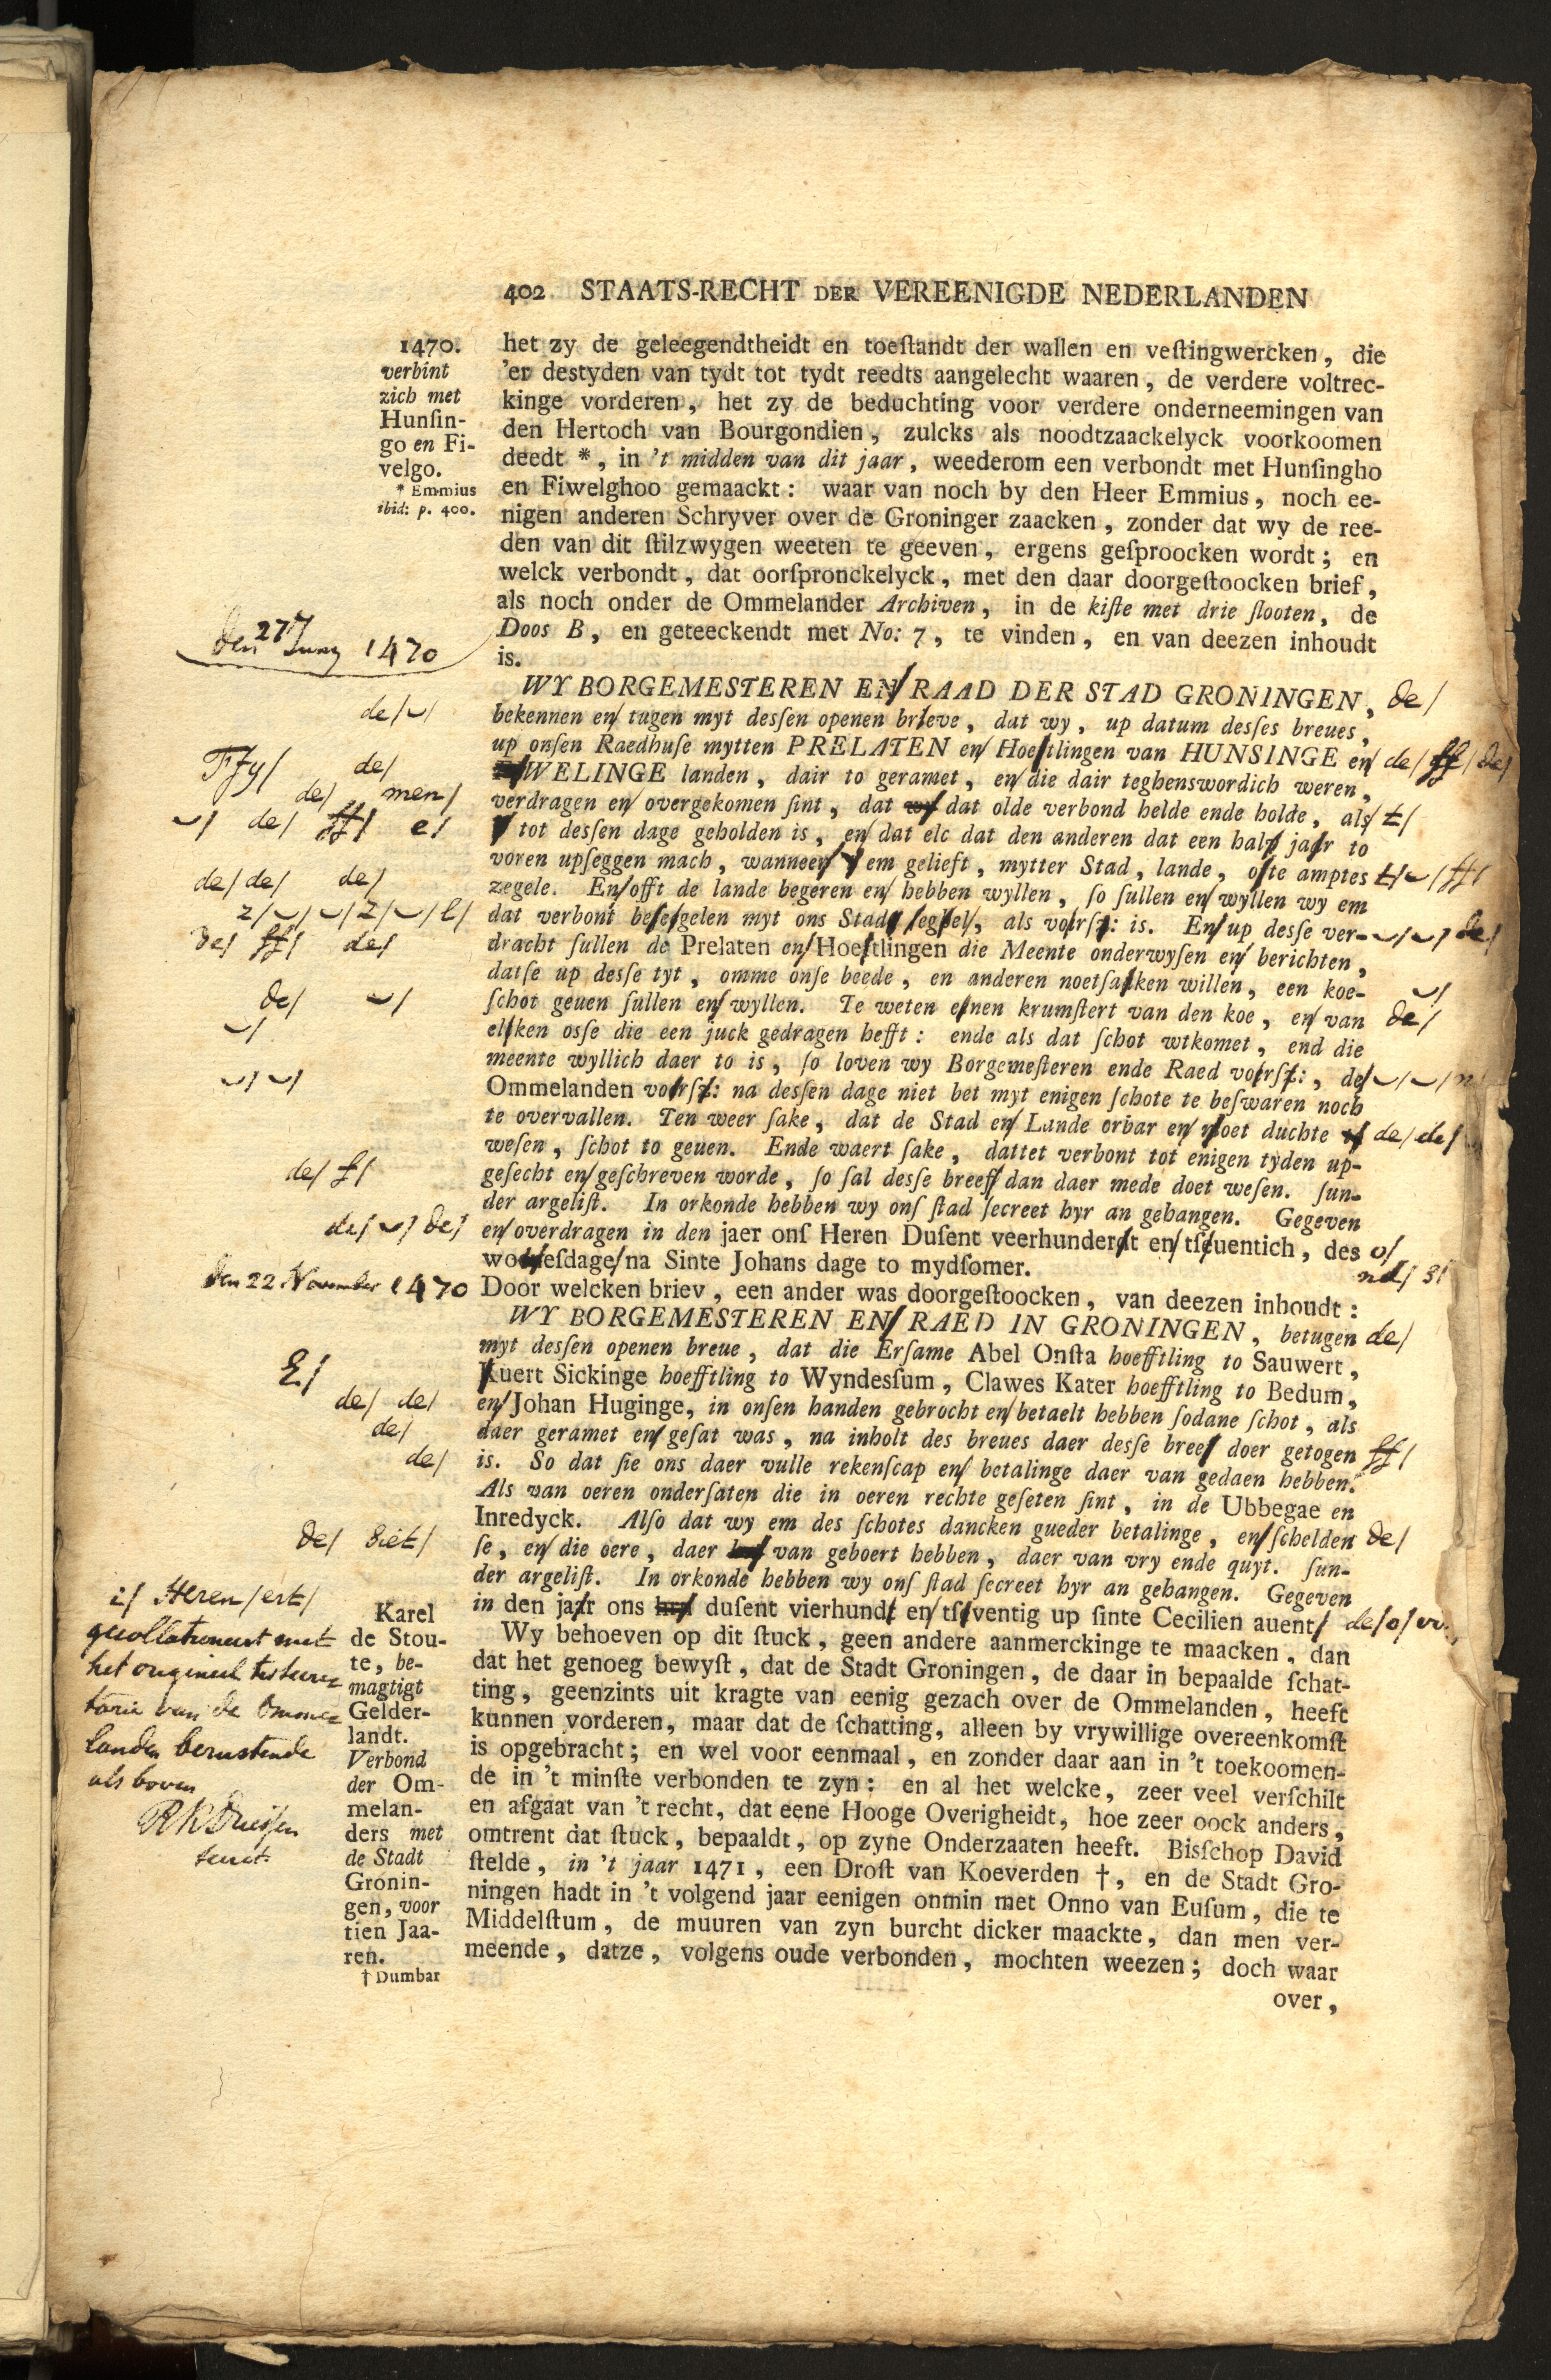 402 STAATS-RECHT DER VEREENIGDE NEDERLANDEN
1470.
verbint
zich met
Hunſin-
go en Fi-
velgo.
* Emmius
ibid: p. 400.
het zy de geleegendtheidt en toeſtandt der wallen en veſtingwercken, die
'er destyden van tydt tot tydt reedts aangelecht waaren, de verdere voltrec-
kinge vorderen, het zy de beduchting voor verdere onderneemingen van
den Hertoch van Bourgondien, zulcks als noodtzaackelyck voorkoomen
deedt *, in 't midden van dit jaar, weederom een verbondt met Hunſingho
en Fiwelghoo gemaackt: waar van noch by den Heer Emmius, noch ee-
nigen anderen Schryver over de Groninger zaacken, zonder dat wy de ree-
den van dit ſtilzwygen weeten te geeven, ergens geſproocken wordt; en
welck verbondt, dat oorſpronckelyck, met den daar doorgeſtoocken brief,
als noch onder de Ommelander Archiven, in de kiſte met drie ſlooten, de
Doos B, en geteeckendt met No: 7, te vinden, en van deezen inhoudt
is.
den 27 Juny 1470
WY BORGEMESTEREN EN/ RAAD DER STAD GRONINGEN, de/
de/
bekennen en/ tugen myt desſen openen brieve, dat wy, up datum desſes breues,
up onſen Raedhuſe mytten PRELATEN en/ Hoeſtlingen van HUNSINGE en/ de/ ff/ de/
Ffy/ de/
WELINGE landen, dair to geramet, en/ die dair teghenswordich weren,
de/ men/
verdragen en/ overgekomen ſint, dat wy dat olde verbond helde ende holde, als/ t/
de/ ff/ e/
tot desſen dage geholden is, en/ dat elc dat den anderen dat een half jaer to
voren upſeggen mach, wanneer em gelieft, mytter Stad, lande, oſte amptes t/ ff/
de/ de/ de/
zegele. En/ offt de lande begeren en/ hebben wyllen, ſo ſullen en/ wyllen wy em
dat verbont beſegelen myt ons Stads ſeghel, als voirſz: is. En/ up desſe ver- de/
de/ ff/ de/
dracht ſullen de Prelaten en/ Hoeſtlingen die Meente onderwyſen en/ berichten,
datſe up desſe tyt, omme onſe beede, en anderen noetſaiken willen, een koe-
de/
ſchot geuen ſullen en/ wyllen. Te weten einen krumſtert van den koe, en/ van de/
elken osſe die een juck gedragen hefft: ende als dat ſchot wtkomet, end die
meente wyllich daer to is, ſo loven wy Borgemeſteren ende Raed voirſz:, de/
Ommelanden voirſz: na desſen dage niet bet myt enigen ſchote te beſwaren noch
te overvallen. Ten weer ſake, dat de Stad en/ Lande orbar en/ noet duchte de/ de/
weſen, ſchot to geuen. Ende waert ſake, dattet verbont tot enigen tyden up-
de/ f/
geſecht en/ geſchreven worde, ſo ſal desſe breeff dan daer mede doet weſen. ſun-
der argeliſt. In orkonde hebben wy onſ ſtad ſecreet hyr an gehangen. Gegeven
de/ de/
en/ overdragen in den jaer onſ Heren Duſent veerhundert en/ tſeuentich, des o/
woenſdage/ na Sinte Johans dage to mydſomer.
nd/
den 22 November 1470
Door welcken briev, een ander was doorgeſtoocken, van deezen inhoudt:
WY BORGEMESTEREN EN/ RAED IN GRONINGEN, betugen de/
myt desſen openen breue, dat die Erſame Abel Onſta hoefftling to Sauwert,
uert Sickinge hoefftling to Wyndesſum, Clawes Kater hoefftling to Bedum,
de/ de/
en/ Johan Huginge, in onſen handen gebrocht en/ betaelt hebben ſodane ſchot, als
de/
daer geramet en/ geſat was, na inholt des breues daer desſe breef doer getogen ff/
de/
is. So dat ſie ons daer vulle rekenſcap en/ betalinge daer van gedaen hebben.
Als van oeren onderſaten die in oeren rechte geſeten ſint, in de Ubbegae en
Inredyck. Alſo dat wy em des ſchotes dancken gueder betalinge, en/ ſchelden de/
de/
ſe, en/ die oere, daer van geboert hebben, daer van vry ende quyt. ſun-
der argeliſt. In orkonde hebben wy onſ ſtad ſecreet hyr an gehangen. Gegeven
Heren/ ert/
in den jaer ons duſent vierhundt en/ tſeventig up ſinte Cecilien auent/ de/ o/
gecollationeert met
het origineel
van de Omme-
landen berustende
als boven
Karel
de Stou-
te, be-
magtigt
Gelder-
landt.
Verbond
der Om-
melan-
ders met
de Stadt
Gronin-
gen, voor
tien Jaa-
ren.
† Dumbar
Wy behoeven op dit ſtuck, geen andere aanmerckinge te maacken, dan
dat het genoeg bewyſt, dat de Stadt Groningen, de daar in bepaalde ſchat-
ting, geenzints uit kragte van eenig gezach over de Ommelanden, heeft
kunnen vorderen, maar dat de ſchatting, alleen by vrywillige overeenkomſt
is opgebracht; en wel voor eenmaal, en zonder daar aan in 't toekoomen-
de in 't minſte verbonden te zyn: en al het welcke, zeer veel verſchilt
en afgaat van 't recht, dat eene Hooge Overigheidt, hoe zeer oock anders,
omtrent dat ſtuck, bepaaldt, op zyne Onderzaaten heeft. Bisſchop David
ſtelde, in 't jaar 1471, een Droſt van Koeverden †, en de Stadt Gro-
ningen hadt in 't volgend jaar eenigen onmin met Onno van Euſum, die te
Middelſtum, de muuren van zyn burcht dicker maackte, dan men ver-
meende, datze, volgens oude verbonden, mochten weezen; doch waar
over,